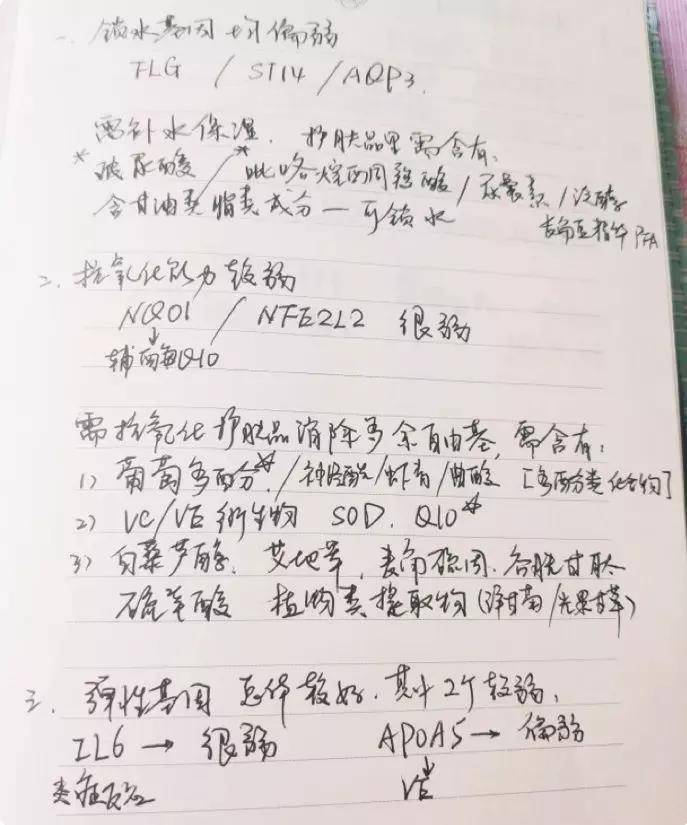 一、锁水基因均偏弱
FLG / ST14 / AQP3.
需补水保湿. 护肤品里需含有:
*玻尿酸 / *吡咯烷酮羧酸 / 尿囊素 /
含甘油类脂类成分一可锁水 PFA
二、抗氧化能力较弱
NQO1 / NFE2L2 很弱
↓
辅酶Q10
需抗氧化护肤品消除多余自由基, 需含有:
1) 葡萄多酚* / 神经酰 / 虾青 / 曲酸 [多酚类化合物]
2) VC/VE衍生物 SOD. Q10*
3) 白藜芦醇. 艾地苯. 表角 谷胱甘肽
硫辛酸 植物类提取物(洋甘菊/光果甘草)
三、弹性基因 总体较好. 其中2个较弱.
IL6 → 很弱 APOA5 → 偏弱
↓
炎症反应 VE